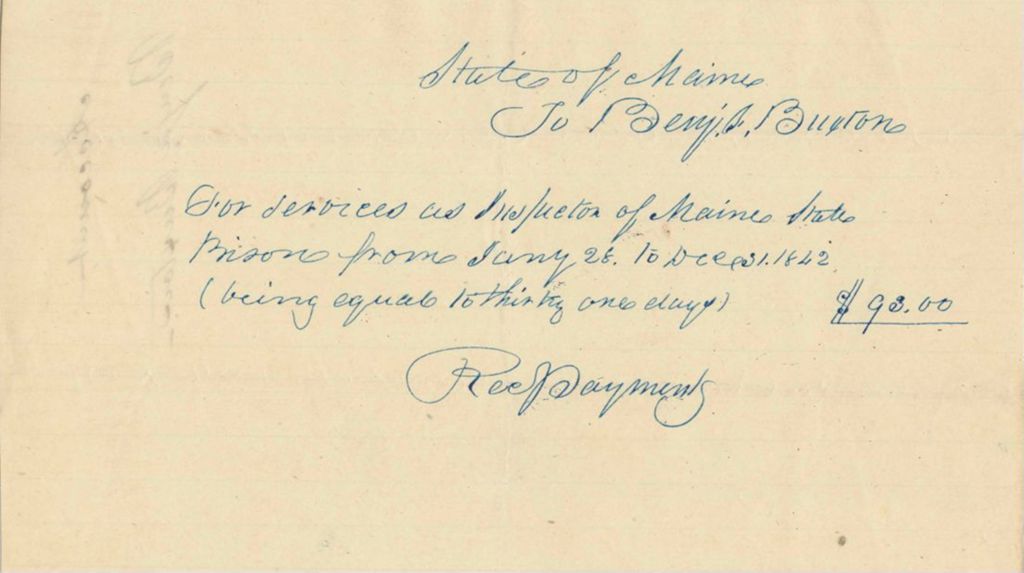 State of Maine
To Benj. F. Buxton
For services as Inspector of Maine State
Prison from Jany 28. to Dec. 31. 1842
(being equal to thirty one days) $ 93.00
Rec'd Payment